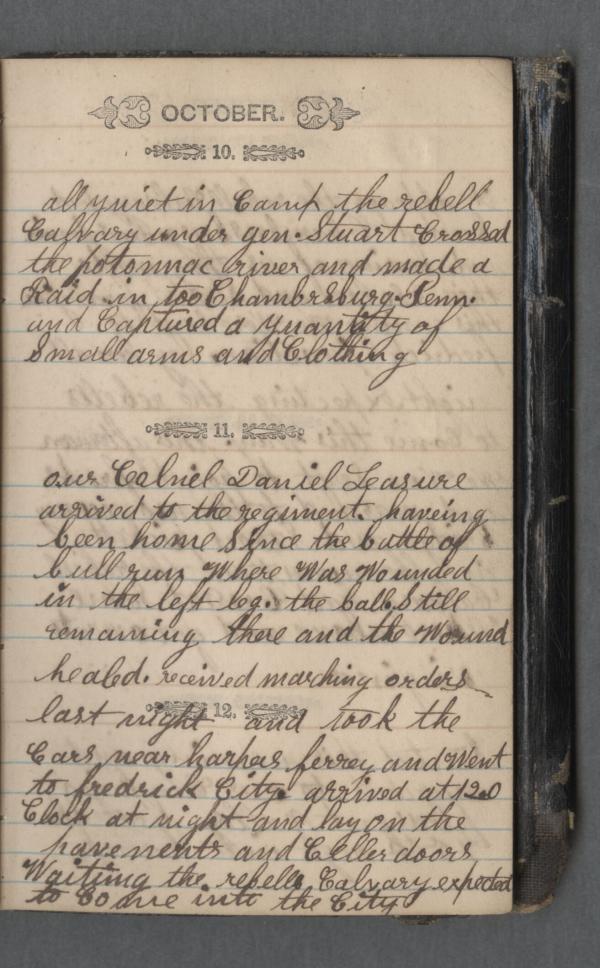 OCTOBER.
10.
all quiet in Camp the rebell
Calvary under gen. Stuart Crossed
the potomnac river and made a
Raid in too Chambrsburg. Penn.
and Captured a quantity of
Small arms and Clothing
11.
our Colniel Daniel Leasure
arrived to the regiment. haveing
been home Since the battle of
bull run Where Was Wounded
in the left leg. the ball Still
remaining there and the Wound
healed. received marching orders
last night and took the
12.
Cars near harpers ferrey and Went
to fredrick City. arrived at 12 O
Clock at night and lay on the
pavements and Celler doors
Waiting the rebells Calvary expected
to Come into the City